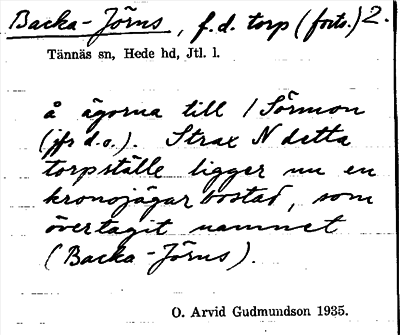 Backa-Jörns, f.d. torp (forts.) 2.
Tännäs sn, Hede hd, Jtl. l.
å ägorna till 1 Sörmon
(jfr d.o.). Strax N detta
torpställe ligger nu en
kronojägarbostad, som
övertagit namnet
(Backa-Jörns).
O. Arvid Gudmundson 1935.